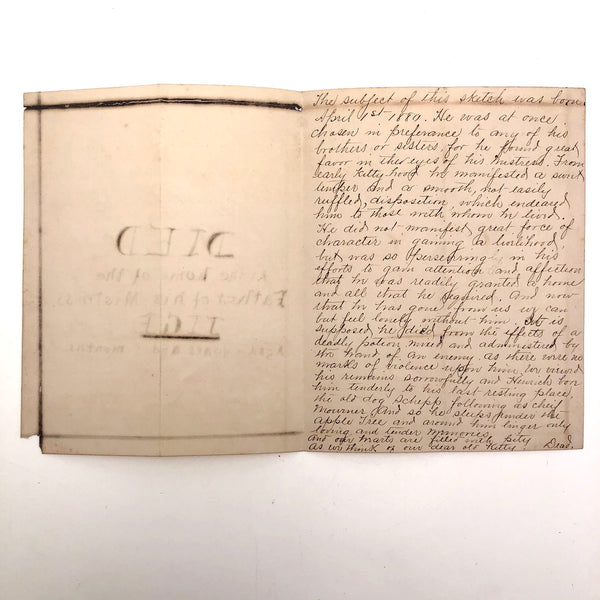 DIED
At the home of the
Father of his Mistress,
TIGE
Aged years and
months
The subject of this sketch was born
April 1st 1880. He was at once
chosen in preferance to any of his
brothers or sisters, for he found great
favor in the eyes of his Mistress. From
early Kitty-hood he manifested a sweet
temper and a smooth, not easily
ruffled, disposition, which endeared
him to those with whom he lived.
He did not manifest great force of
character in gaining a livlihood,
but was so perseveringly in his
efforts to gain attention and affection
that he was readily granted a home
and all that he required. And now
that he has gone from us we can
but feel lonely without him. It is
supposed he died from the effects of a
deadly potion mixed and administered by
the hand of an enemy, as there were no
marks of violence upon him. We viewed
his remains sorrowfully and Henrich bore
him tenderly to his last resting place,
the old dog Schepp following as chief
Mourner. And so he sleeps under the
Apple Tree and around him linger only
loving and tender Memories
and our hearts are filled with pity
As we think of our dear old Kitty. Dead.